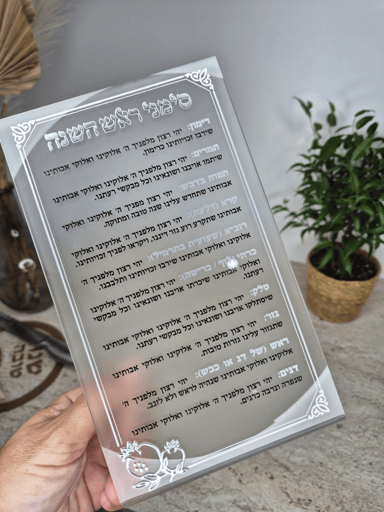 סימני ראש השנה
רימון: יהי רצון מלפניך ה׳ אלוקינו ואלוקי אבותינו
שירבו זכויותינו כרימון.
תמרים: יהי רצון מלפניך ה׳ אלוקינו ואלוקי אבותינו
שיתמו אויבנו ושונאינו וכל מבקשי רעתנו.
תפוח בדבש: יהי רצון מלפניך ה׳ אלוקינו ואלוקי
אבותינו שתחדש עלינו שנה טובה ומתוקה.
קרא (דלעת): יהי רצון מלפניך ה׳ אלוקינו ואלוקי
אבותינו שתקרע רוע גזר דיננו, ויקראו לפניך זכויותינו.
רוביא (שעועית בתרמיל): יהי רצון מלפניך ה׳
אלוקינו ואלוקי אבותינו שירבו זכויותינו ותלבבנו.
כרתי (כרישה): יהי רצון מלפניך ה׳ אלוקינו
ואלוקי אבותינו שיכרתו אויבנו ושונאינו וכל מבקשי
רעתנו.
סלק: יהי רצון מלפניך ה׳ אלוקינו ואלוקי אבותינו
שיסתלקו אויבנו ושונאינו וכל מבקשי רעתנו.
גזר: יהי רצון מלפניך ה׳ אלוקינו ואלוקי אבותינו
שתגזור עלינו גזרות טובות.
ראש (של דג או כבש): יהי רצון מלפניך ה׳
אלוקינו ואלוקי אבותינו שנהיה לראש ולא לזנב.
דגים: יהי רצון מלפניך ה׳ אלוקינו ואלוקי אבותינו
שנפרה ונרבה כדגים.